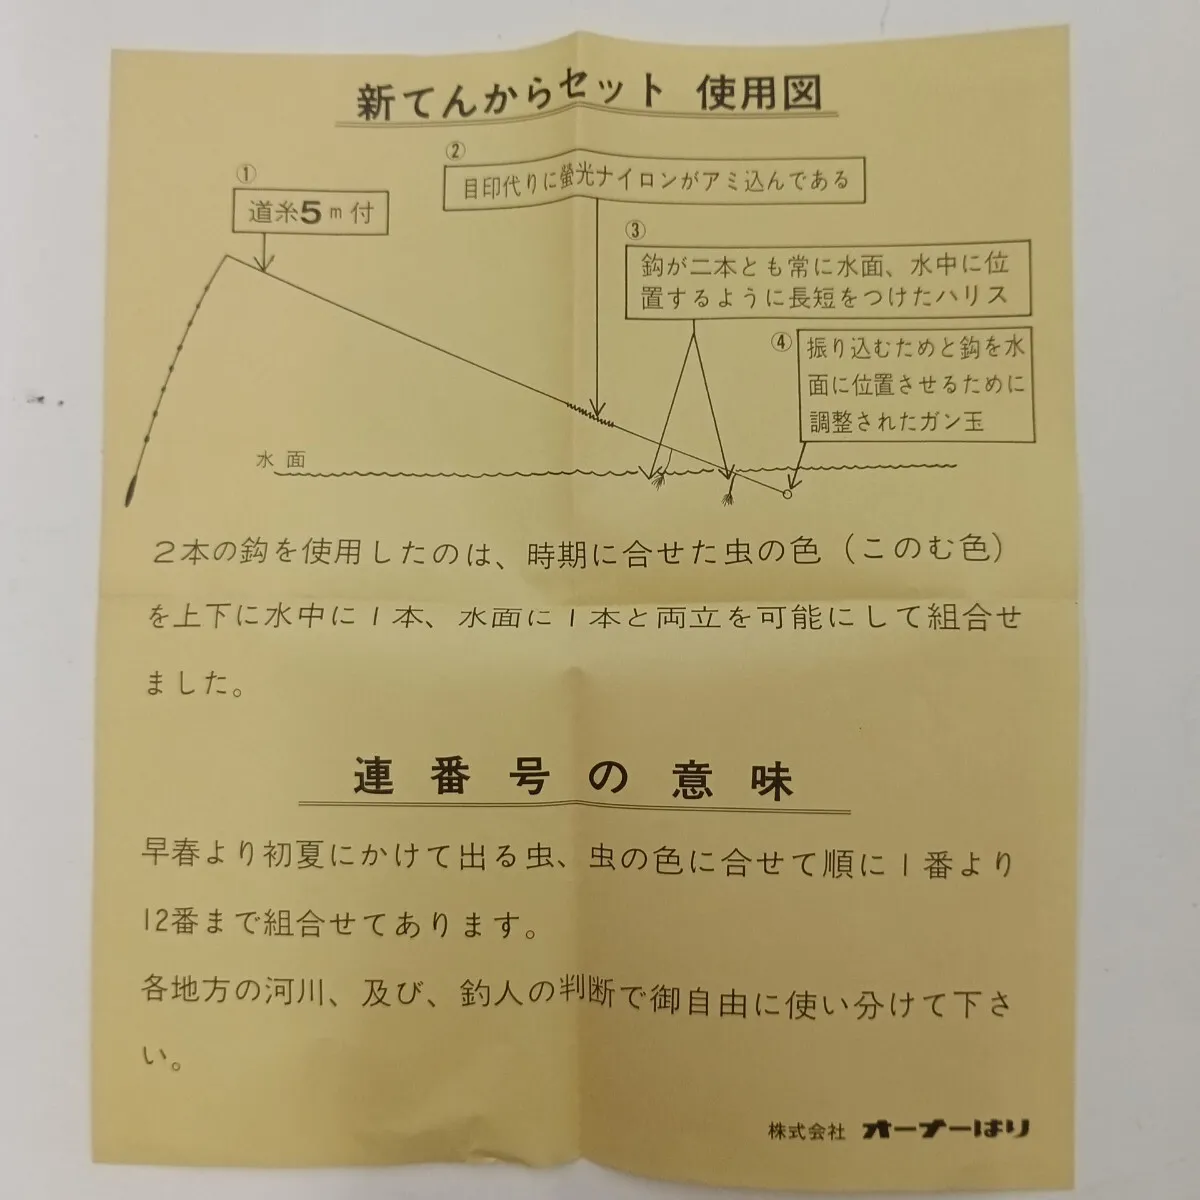 新てんからセット 使用図
①
道糸5m付
②
目印代りに螢光ナイロンがアミ込んである
③
鈎が二本とも常に水面、水中に位
置するように長短をつけたハリス
④
振り込むためと鈎を水
面に位置させるために
調整されたガン玉
水面
2本の鈎を使用したのは、時期に合せた虫の色(このむ色)
を上下に水中に1本、水面に1本と両立を可能にして組合せ
ました。
連番号の意味
早春より初夏にかけて出る虫、虫の色に合せて順に1番より
12番まで組合せてあります。
各地方の河川、及び、釣人の判断で御自由に使い分けて下さ
い。
株式会社 オーナーばり